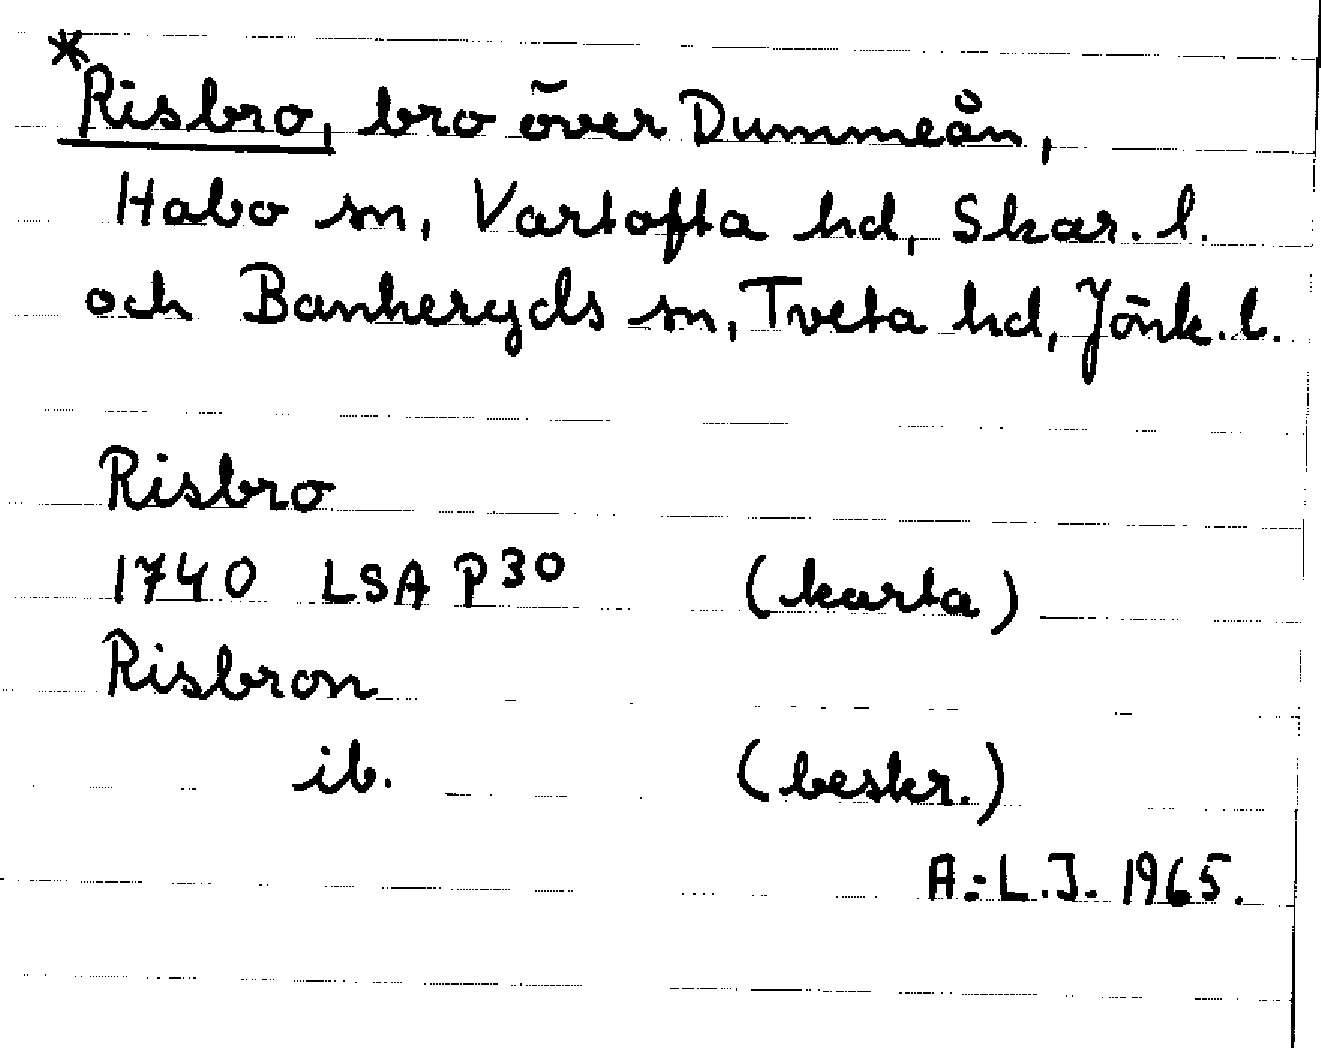 *Risbro, bro över Dummeån,
Habo sn, Vartofta hd, Skar. l.
och Bankeryds sn, Tveta hd, Jönk. l.
Risbro
1740 LSA P30 (karta)
Risbron
ib. (beskr.)
A.-L.J. 1965.